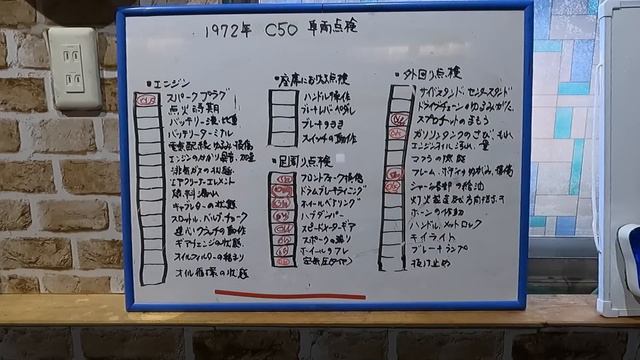 1972年 C50 車両点検
■エンジン
スパークプラグ
点火時期
バッテリー液比重
バッテリーターミナル
電気配線ゆるみ損傷
エンジンのかかり異音、加速
排気ガスの状態
エアクリーナーエレメント
燃料漏れ
キャブレターの状態
スロットル、バルブ、チョーク
遠心クラッチの動作
ギア、エンジンの状態
オイルフィルターの詰まり
オイル循環の状態
■座席における点検
ハンドル操作
ブレーキレバー、ペダル
ブレーキのきき
スイッチの動作
■足周り点検
フロントフォーク損傷
ドラムブレーキライニング
ホイールベアリング
ハブダンパー
スピードメーターギア
スポークの張り
ホイールのフレ
空気圧タイヤ
■外回り点検
サイドスタンド、センタースタンド
ドライブチェーンのゆるみ
スプロケットのまもう
ガソリンタンクのさび、もれ
エンジンオイルにじみ、量
マフラの状態
フレーム、ボディのゆがみ、損傷
シャーシ各部の給油
灯火装置及び方向指示き
ホーンの作動
ハンドル、メットロック
テイライト
ブレーキランプ
抜け止め